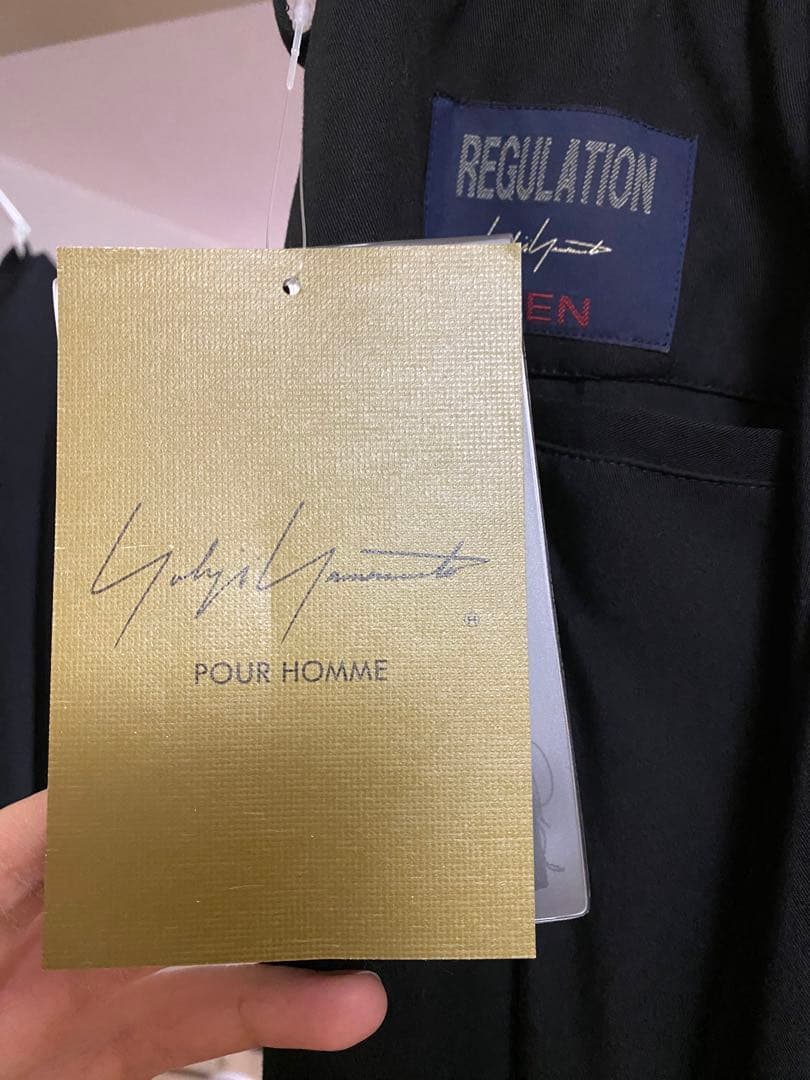 REGULATION
Yohji Yamamoto
EN
Yohji Yamamoto
Ⓗ
POUR HOMME